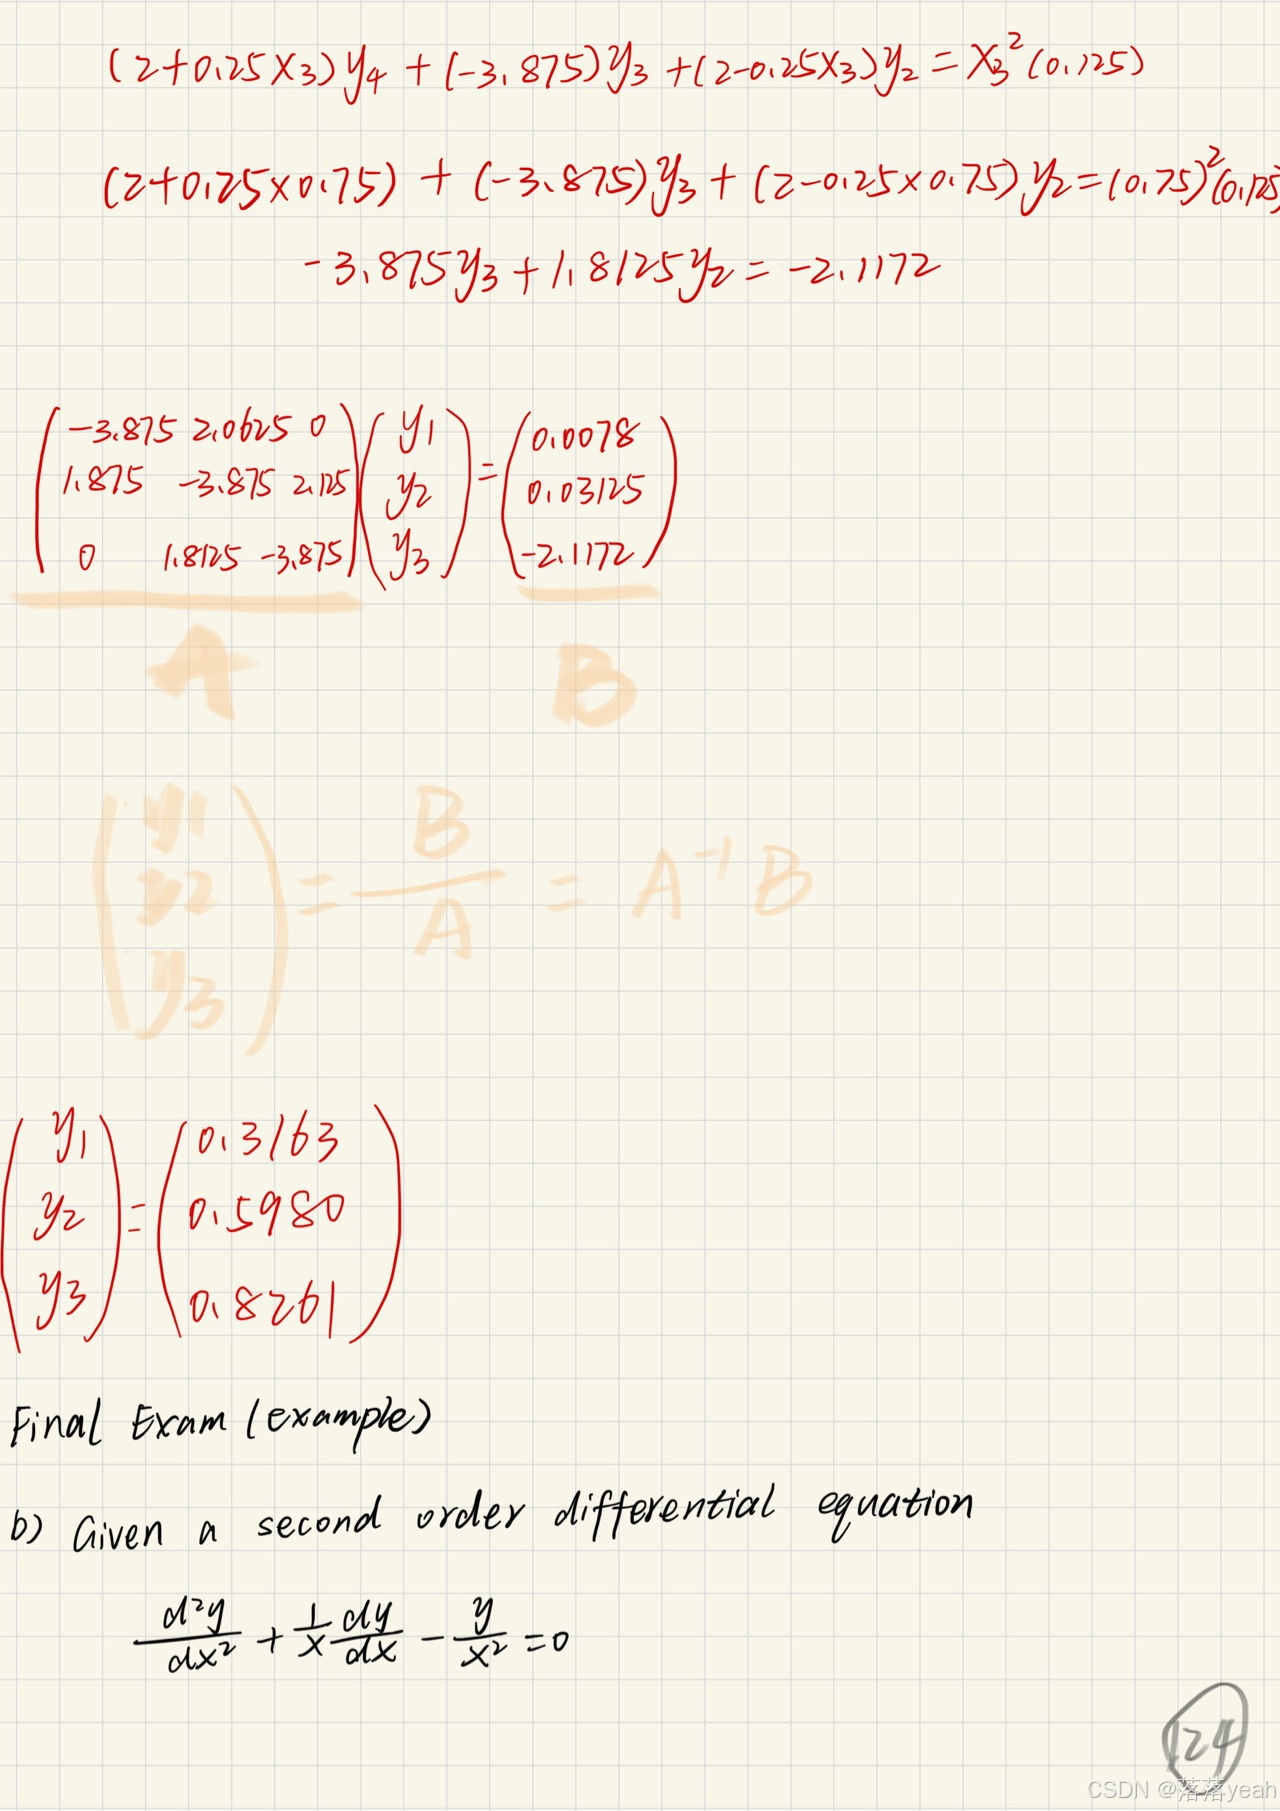 (2+0.25x3)y4 + (-3.875)y3 + (2-0.25x3)y2 = x3²(0.125)
(2+0.25×0.75) + (-3.875)y3 + (2-0.25×0.75)y2 = (0.75)²(0.125
-3.875y3 + 1.8125y2 = -2.1172
-3.875 2.0625 0 y1 0.0078
1.875 -3.875 2.125 y2 = 0.03125
0 1.8125 -3.875 y3 -2.1172
A B
y1 B
y2 = — = A⁻¹B
y3 A
y1 0.3163
y2 = 0.5980
y3 0.8261
Final Exam (example)
b) Given a second order differential equation
d²y/dx² + 1/x dy/dx - y/x² = 0
124
CSDN @落落yeah